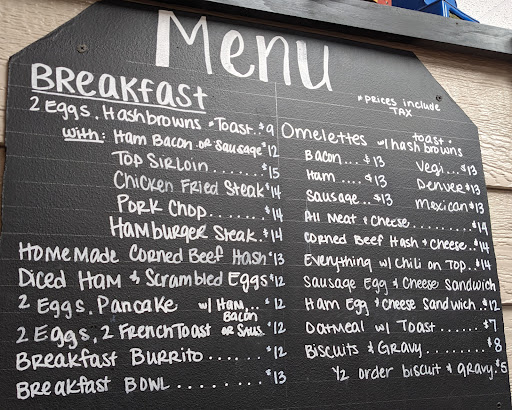 Menu
* Prices include
TAX
BREAKfast
2 Eggs. Hashbrowns + Toast..$9
with: Ham Bacon or Sausage $12
Top Sirloin.......$15
Chicken Fried Steak $14
Pork Chop.......$14
Hamburger Steak.$14
Homemade Corned Beef Hash $13
Diced Ham & Scrambled Eggs $12
2 Eggs. Pancake w/ Ham,.. $12
Bacon
2 Eggs, 2 French Toast or Saus. $12
Breakfast Burrito.......$12
Breakfast Bowl.........$13
Omelettes w/ toast + hashbrowns
Bacon... $13
Ham.... $13
Sausage.. $13
Vegi...$13
Denver $13
Mexican $13
All Meat & Cheese.........$14
Corned Beef Hash & Cheese..$14
Everything w/ Chili on Top..$14
Sausage Egg & Cheese Sandwich
Ham Egg & Cheese Sandwich..$12
Oatmeal w/ Toast.......$7
Biscuits & Gravy.........$8
1/2 order biscuit & gravy.$5